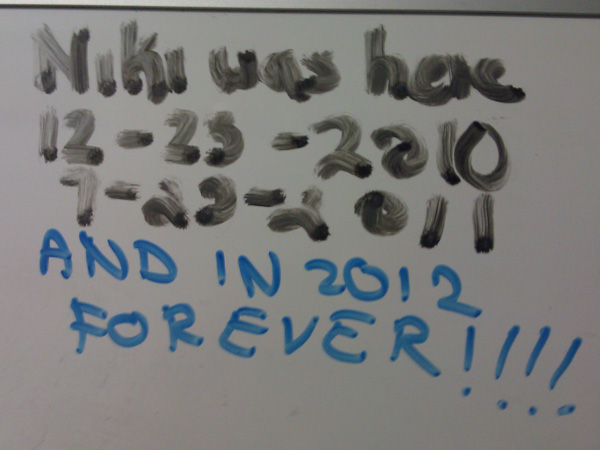 Niki was here
12-23-2010
7-23-2011
AND IN 2012
FOREVER!!!!